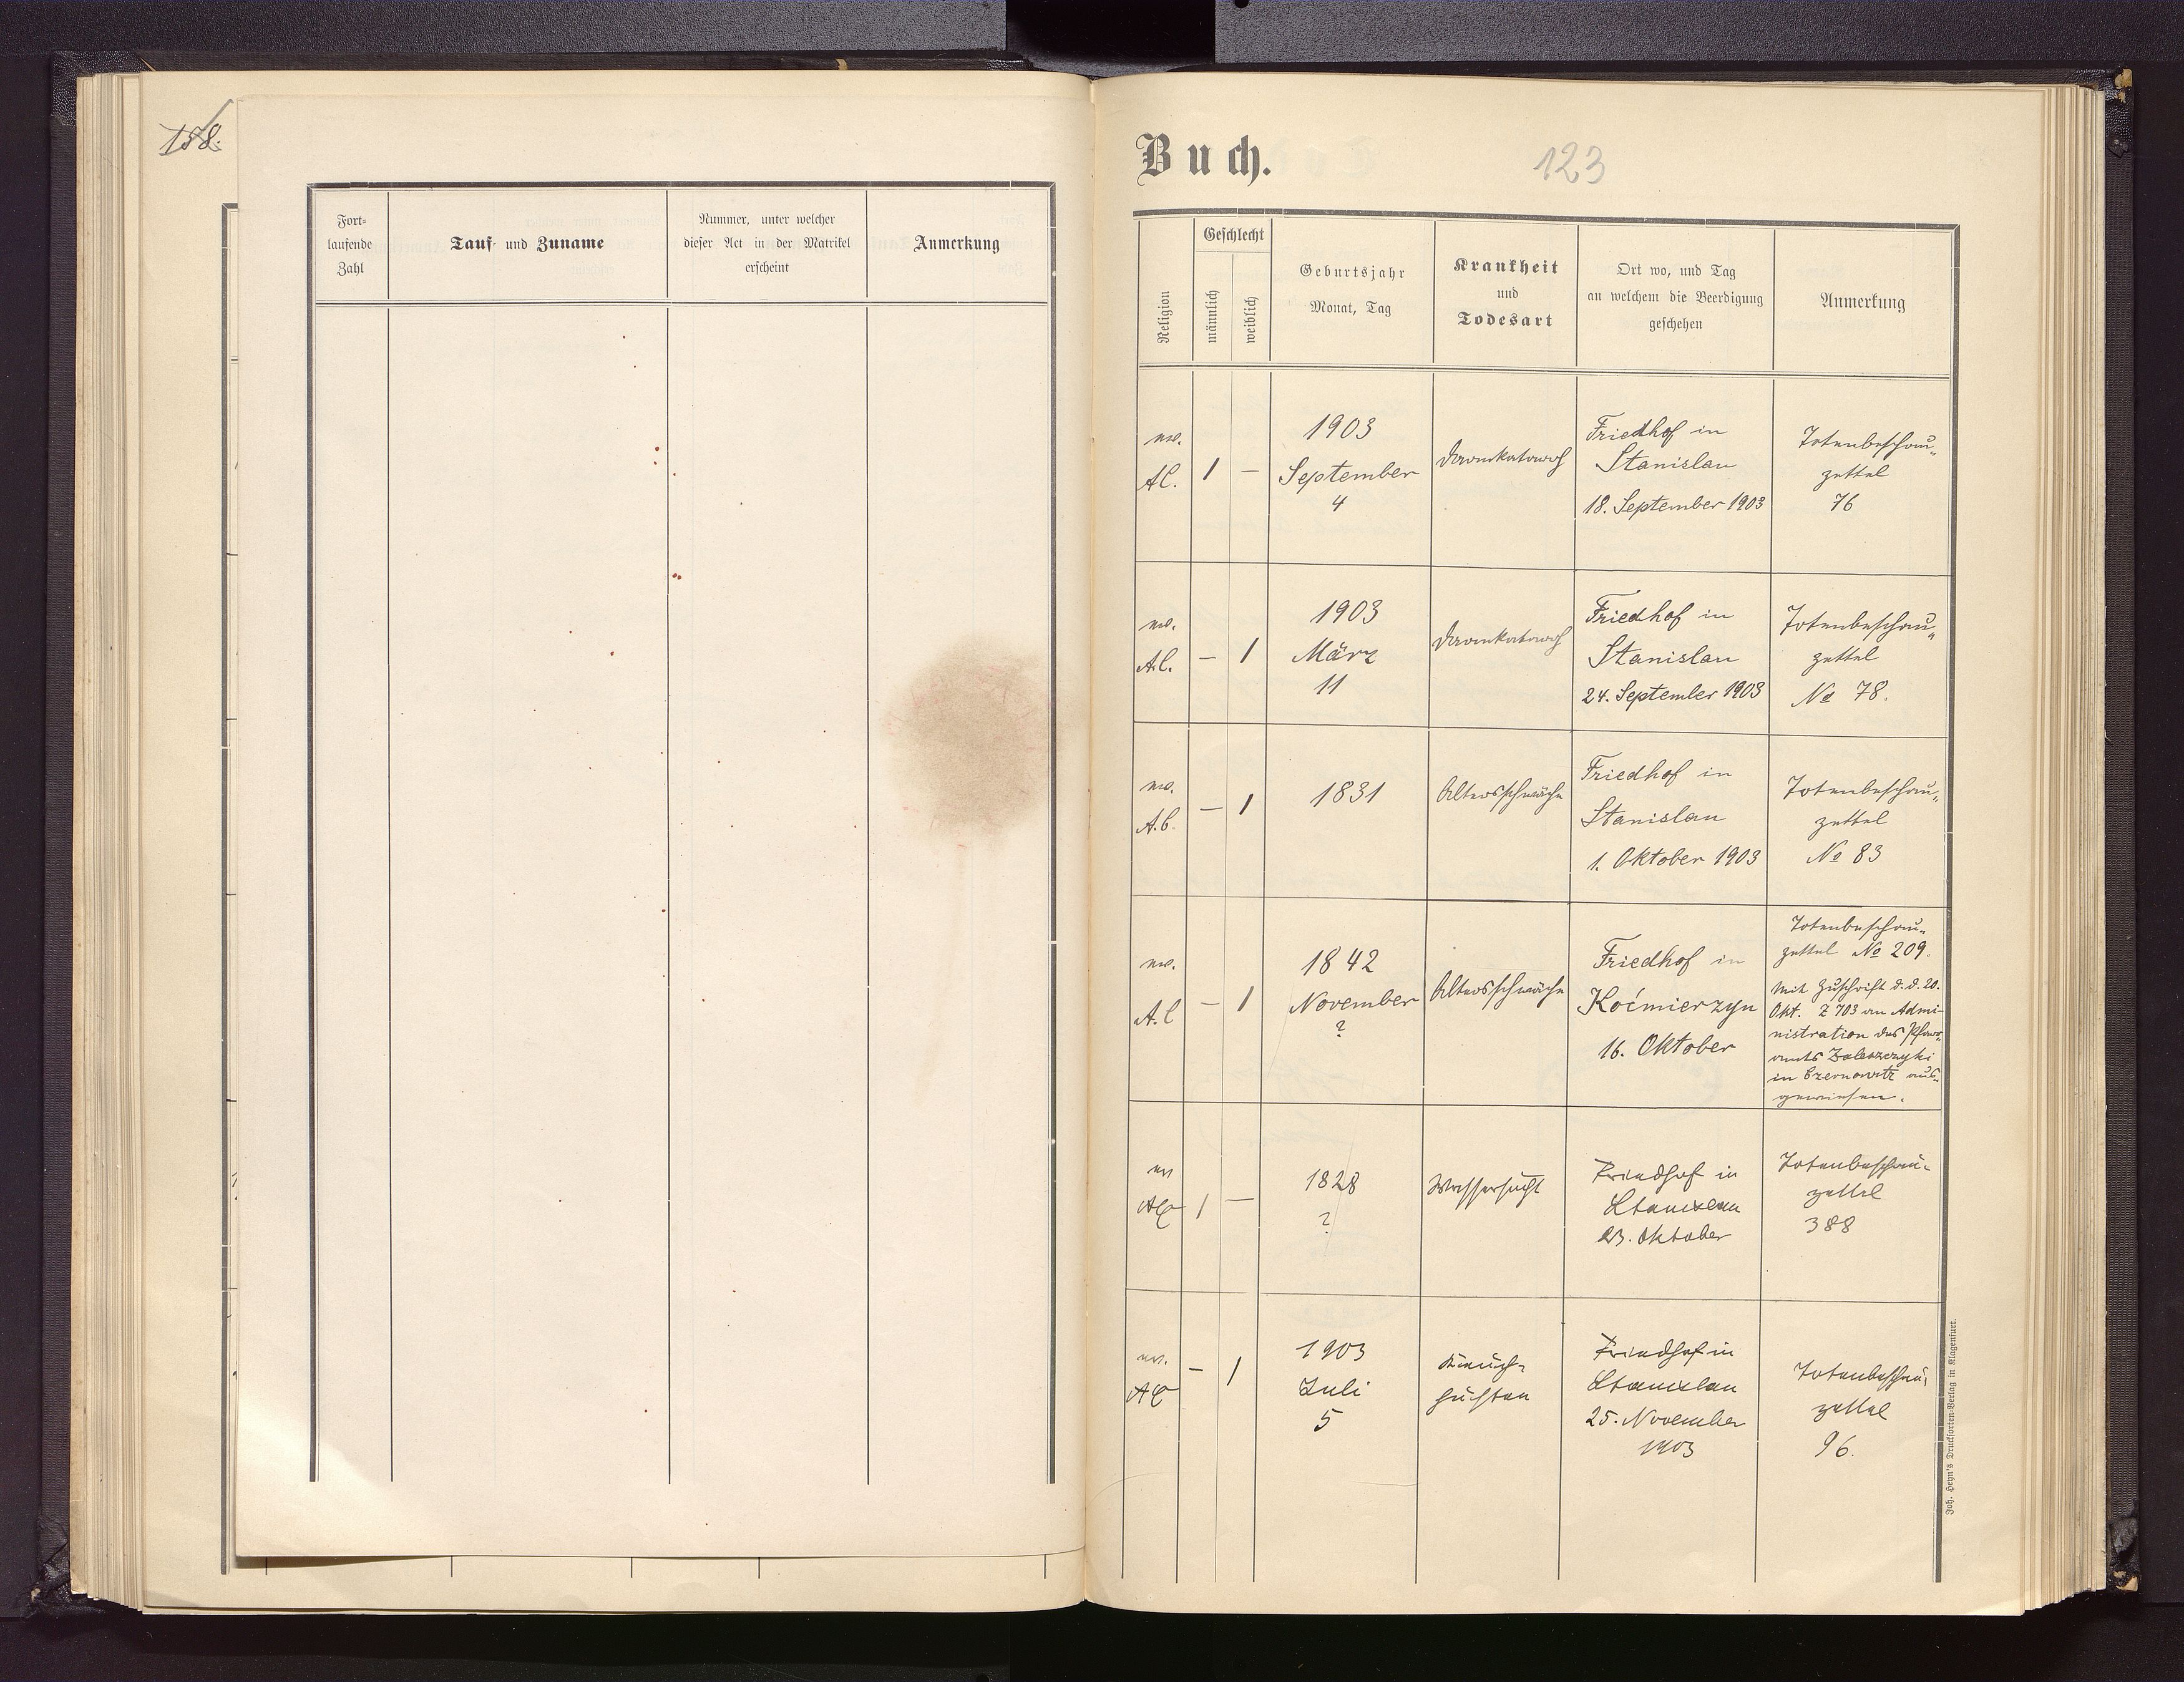 158.
Fort-
laufende
Zahl
Tauf- und Zuname
Nummer, unter welcher
dieser Act in der Matrikel
erscheint
Anmerkung
Buch.
123
Religion
Geschlecht
männlich
weiblich
Geburtsjahr
Monat, Tag
Krankheit
und
Todesart
Ort wo, und Tag
an welchem die Beerdigung
geschehen
Anmerkung
ev.
A.C.
1
—
1903
September
4
Darmkatarrh
Friedhof in
Stanislau
18. September 1903
Totenbeschau-
zettel
76
ev.
A.C.
—
1
1903
März
11
Darmkatarrh
Friedhof in
Stanislau
24. September 1903
Totenbeschau-
zettel
No 78.
ev.
A.C.
—
1
1831
Altersschwäche
Friedhof in
Stanislau
1. Oktober 1903
Totenbeschau-
zettel
No 83
ev.
A.C
—
1
1842
November
?
Altersschwäche
Friedhof in
Koćmierzyn
16. Oktober
Totenbeschau-
zettel No 209.
Mit Zuschrift d. d. 20.
Okt. Z 703 an Admi-
nistration des Pfarr-
amts Zaleszczyki
in Czernowitz aus-
gewiesen.
ev
AC
1
—
1828
?
Wassersucht
Friedhof in
Stanislau
23. Oktober
Totenbeschau-
zettel
388
ev.
AC
—
1
1903
Juli
5
Keuch-
husten
Friedhof in
Stanislau
25. November
1903
Totenbeschau-
zettel
96.
Joh. Heyn's Drucksorten-Verlag in Klagenfurt.